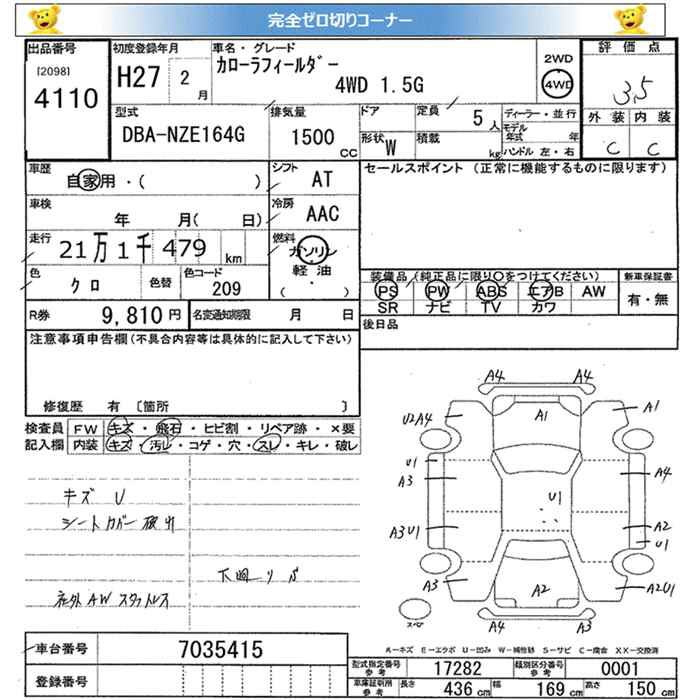 完全ゼロ切りコーナー
出品番号
[2098]
4110
初度登録年月
H27 2月
車名・グレード
カローラフィールダー
4WD 1.5G
2WD
4WD
評価点
3.5
外装 内装
C C
型式
DBA-NZE164G
排気量
1500 CC
ドア
形状 W
定員 5人
積載 kg
ディーラー・並行
モデル年式 年
ハンドル 左・右
車歴
自家用・( )
シフト AT
車検
年 月( 日)
冷房 AAC
走行
21万1千479 km
燃料
ガソリン
軽油
( ・ )
色
クロ
色替
色コード
209
R券 9,810円
名変通知期限 月 日
セールスポイント (正常に機能するものに限ります)
装備品 (純正品に限り○をつけてください)
PS PW ABS エアB AW
SR ナビ TV カワ
新車保証書
有・無
後日品
注意事項申告欄(不具合内容等は具体的に記入して下さい)
修復歴 有 〔箇所 〕
検査員記入欄
FW キズ・飛石・ヒビ割・リペア跡・×要
内装 キズ・汚レ・コゲ・穴・スレ・キレ・破レ
キズ U
シートカバー
下回り
社外AW スタッドレス
A4 A4
U2A4 A1 A1
U1
A3 U1 A4
A3U1 A2
U1
A3 A2 A2U1
A4 A3
スペア
A-キズ E-エクボ U-凹み W-補修跡 S-サビ C-腐食 XX-交換済
車台番号 7035415
登録番号
型式指定番号 参考 17282
類別区分番号 参考 0001
車庫証明用 参考 長さ 436 cm 幅 169 cm 高さ 150 cm